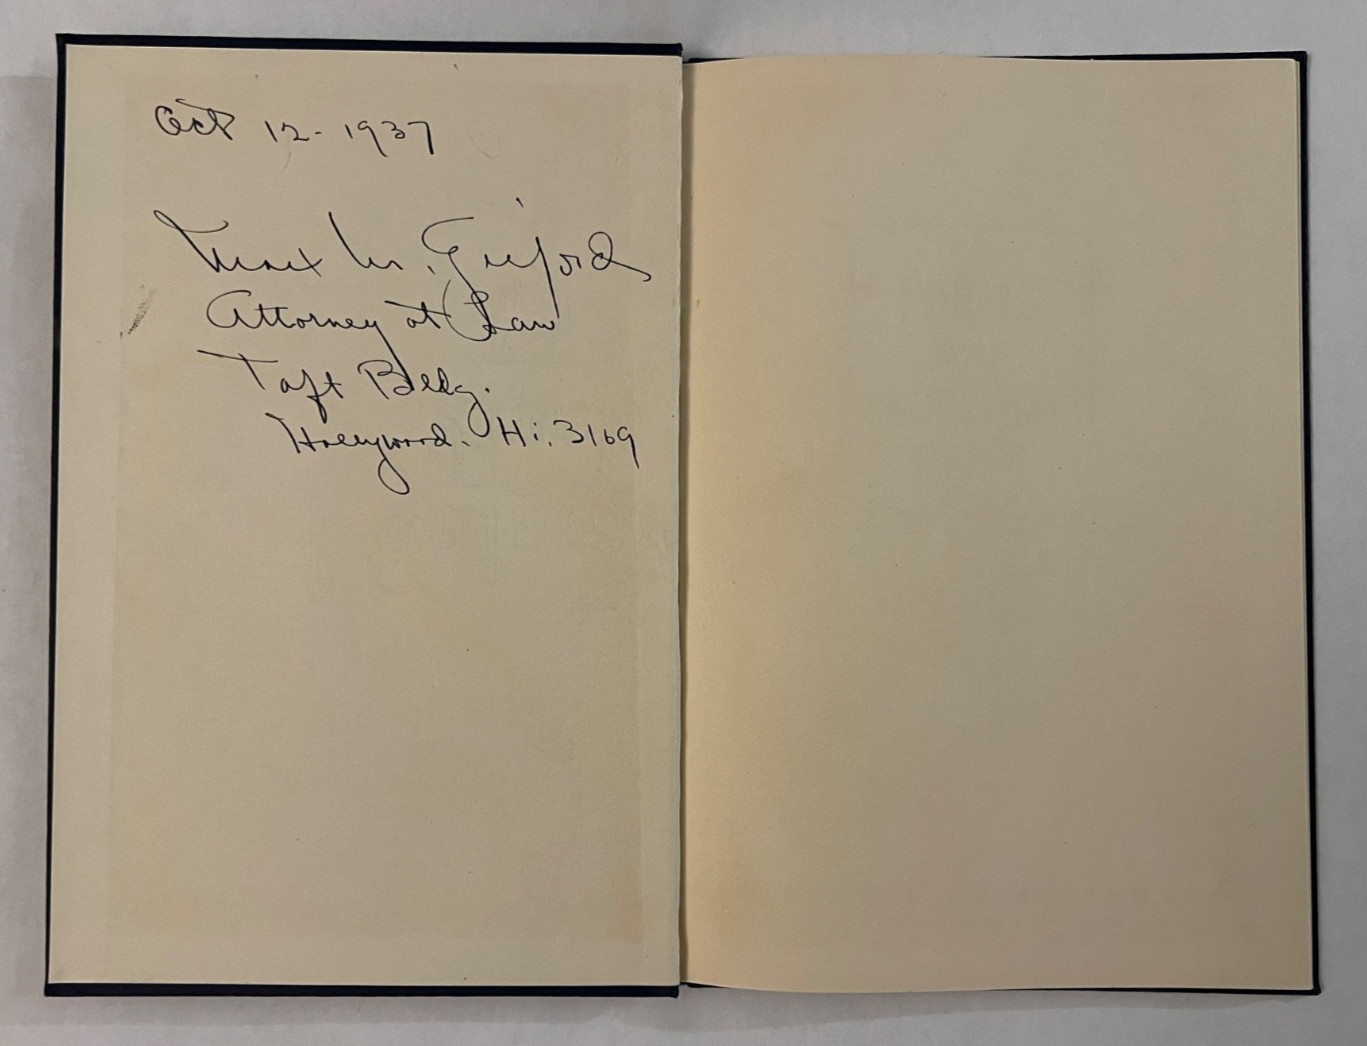 Oct 12-1937
Max M. Gifford
Attorney at Law
Taft Bldg.
Hollywood. Hi. 3169